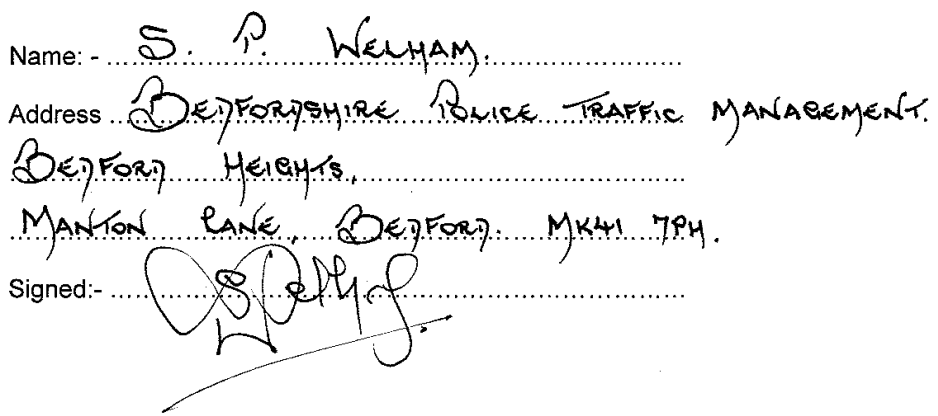 Name: - S. P. WELHAM.
Address BEDFORDSHIRE POLICE TRAFFIC MANAGEMENT.
BEDFORD HEIGHTS,
MANTON LANE, BEDFORD. MK41 7PH.
Signed:-